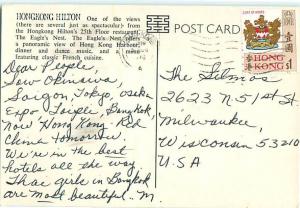 HONGKONG HILTON One of the views
(there are several just as spectacular) from
the Hongkong Hilton's 25th Floor restaurant,
The Eagle's Nest. The Eagle's Nest offers
a panoramic view of Hong Kong Harbour,
dinner and dance music, and a menu
featuring classic French cuisine.
POST CARD
HONG
KONG
$1
香港
壹圓
Dear People,
Saw Okinawa
Saigon, Tokyo, Osaka
Expo, Taipei, Bangkok
now Hong Kong. Red
China tomorrow.
We're in the best
hotels all the way
Thai girls in Bangkok
are most beautiful. M.
The
2623 N-51st St
Milwaukee,
Wisconsin 53210
U.S.A